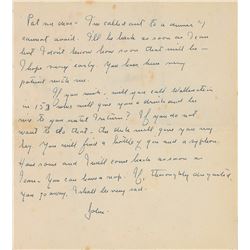 Pat my dear - I'm called out to a dinner I
cannot avoid. I'll be back as soon as I can
but I don't know how soon that will be -
I hope very early. You have been very
patient with me.
If you wish, will you call
in 153 who will give you a drink and be
nice to you until I return? If you do not
want to do that - the desk will give you my
key. You will find a bottle of gin and a syphon.
Have some and I will come back as soon as
I can. You can have a nap. If, thoroughly disgusted,
you go away, I shall be very sad.
John.